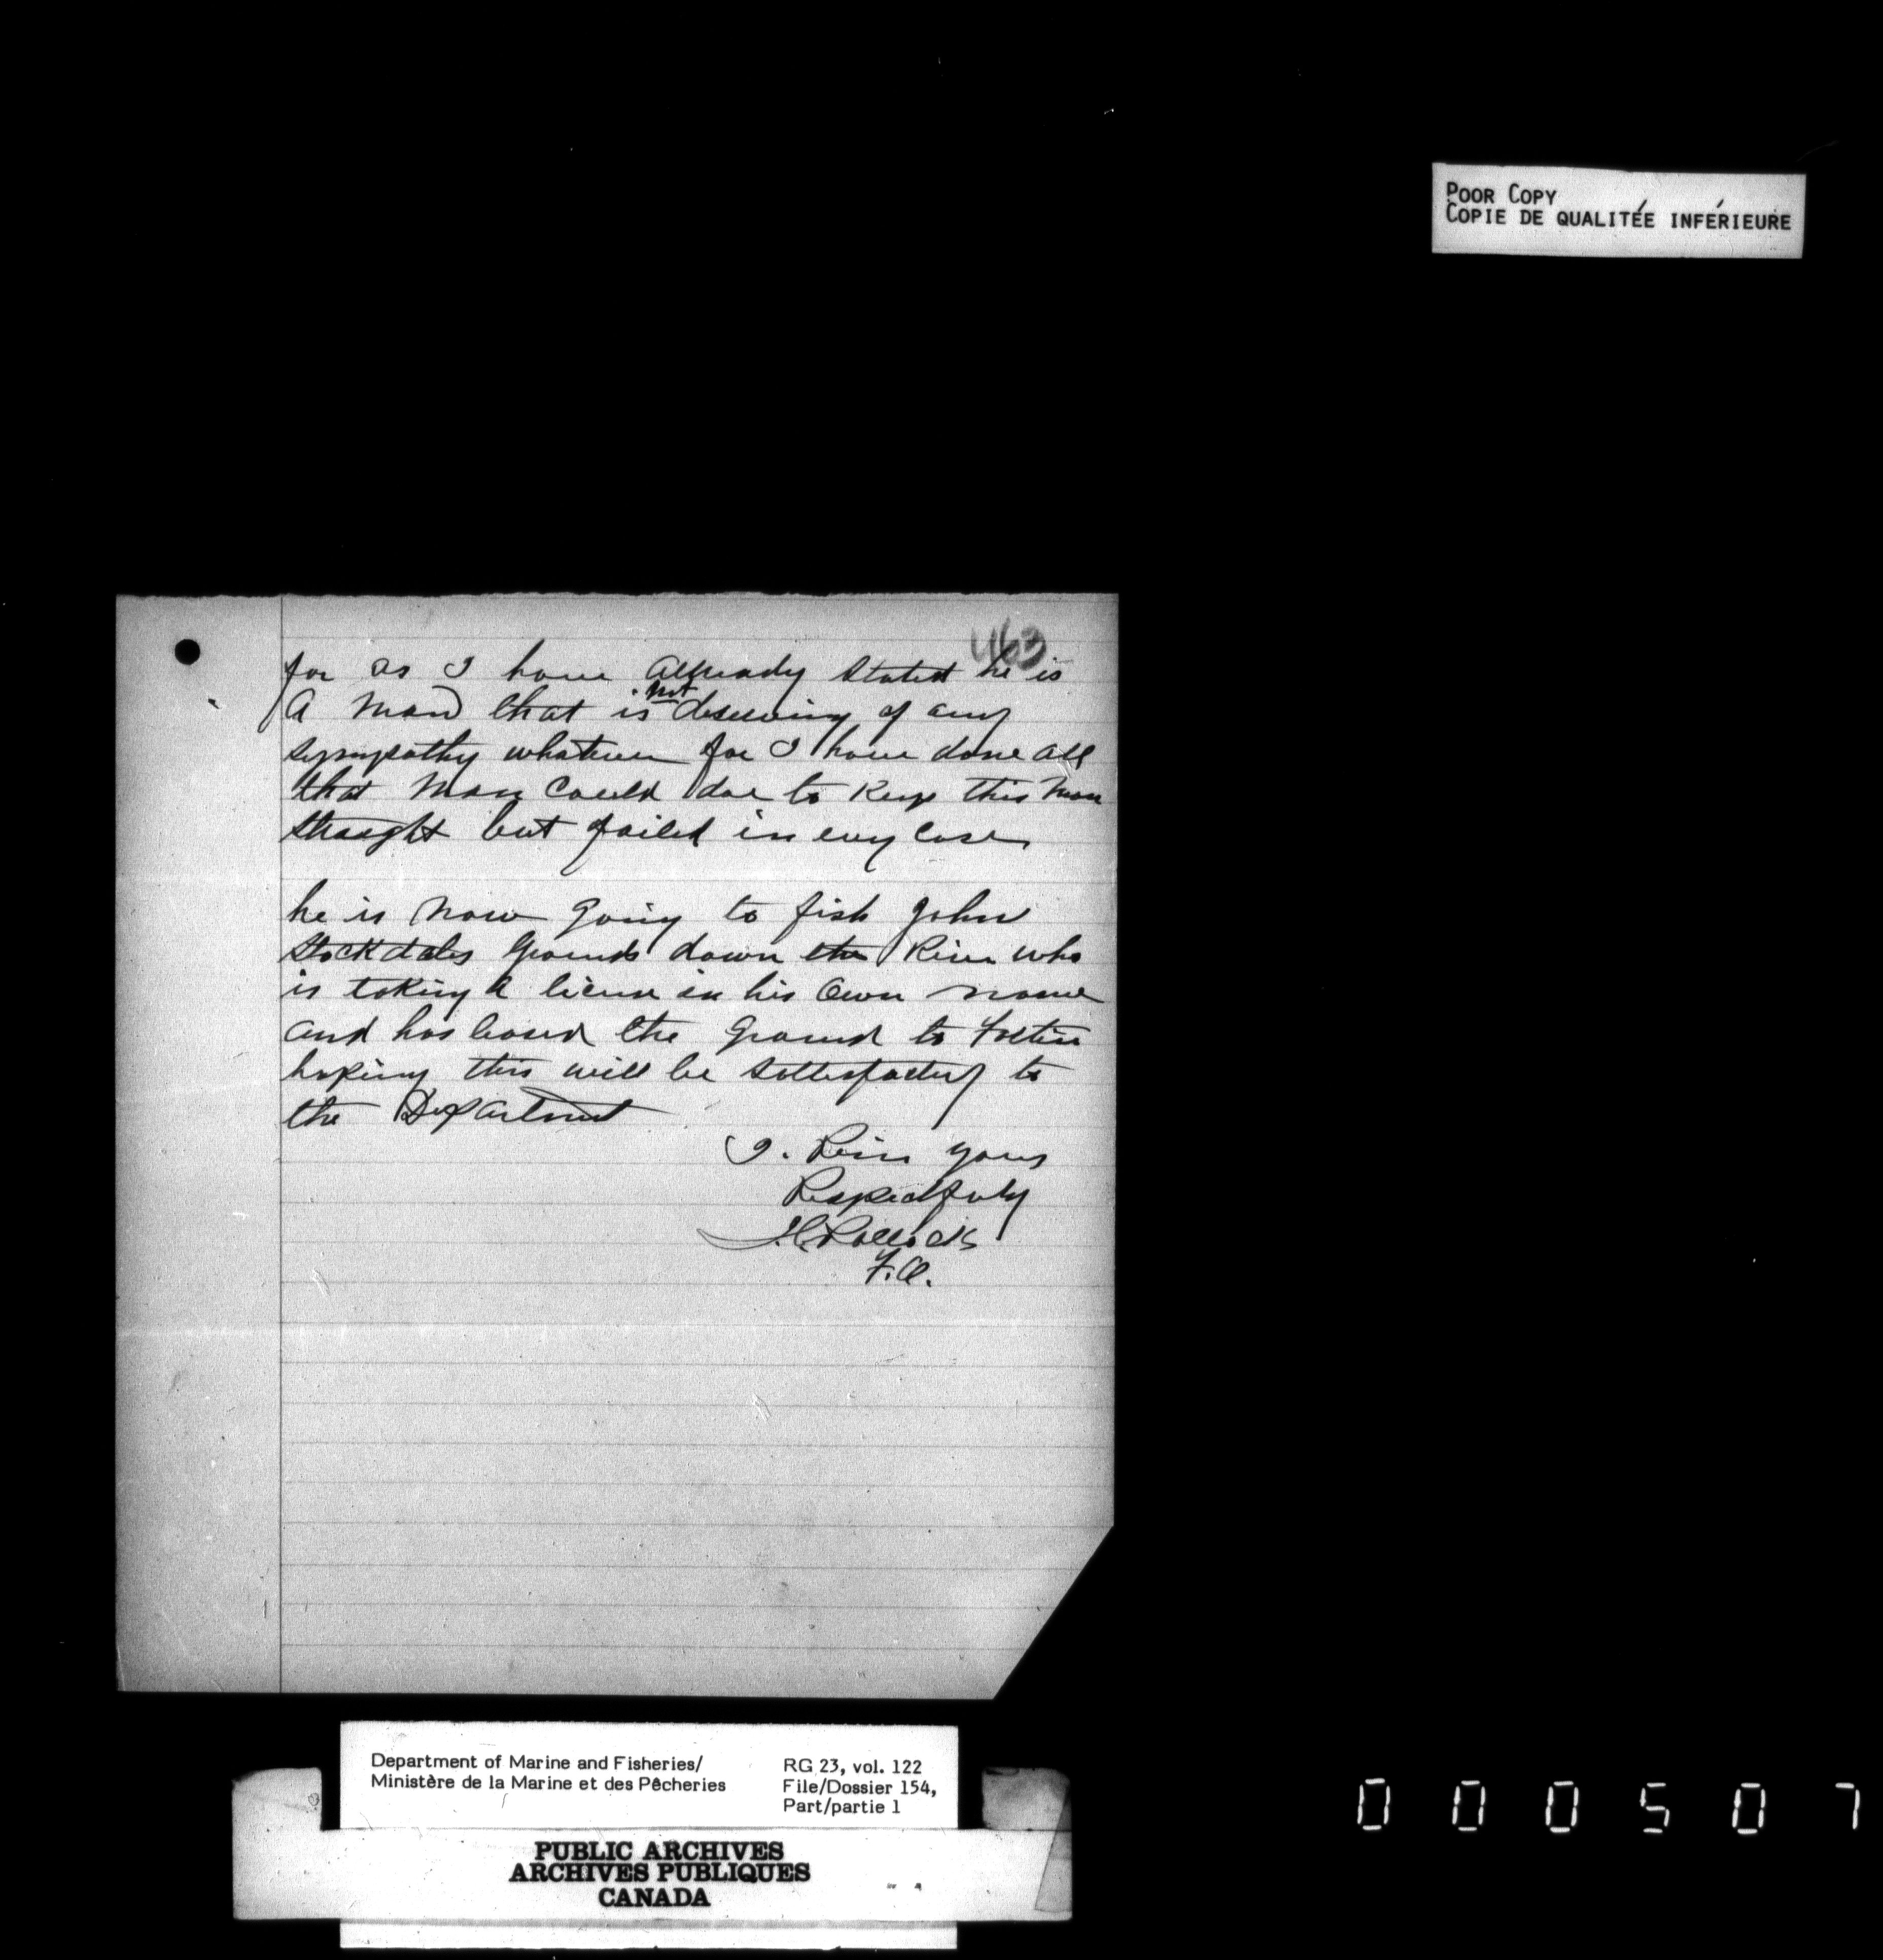 POOR COPY
COPIE DE QUALITÉE INFÉRIEURE
463
for as I have allready stated he is
A man that is not deserving of any
sympathy whatever for I have done all
that man could doe to keep this man
straight but failed in evry case
he is now going to fish John
Stockdales grounds down the River who
is taking A license in his own name
and has leased the ground to
hoping this will be sattesfactory to
the Department
I. Rein yours
Respectfuly
Pollock
F.O.
Department of Marine and Fisheries/
Ministère de la Marine et des Pêcheries
RG 23, vol. 122
File/Dossier 154,
Part/partie 1
PUBLIC ARCHIVES
ARCHIVES PUBLIQUES
CANADA
000507